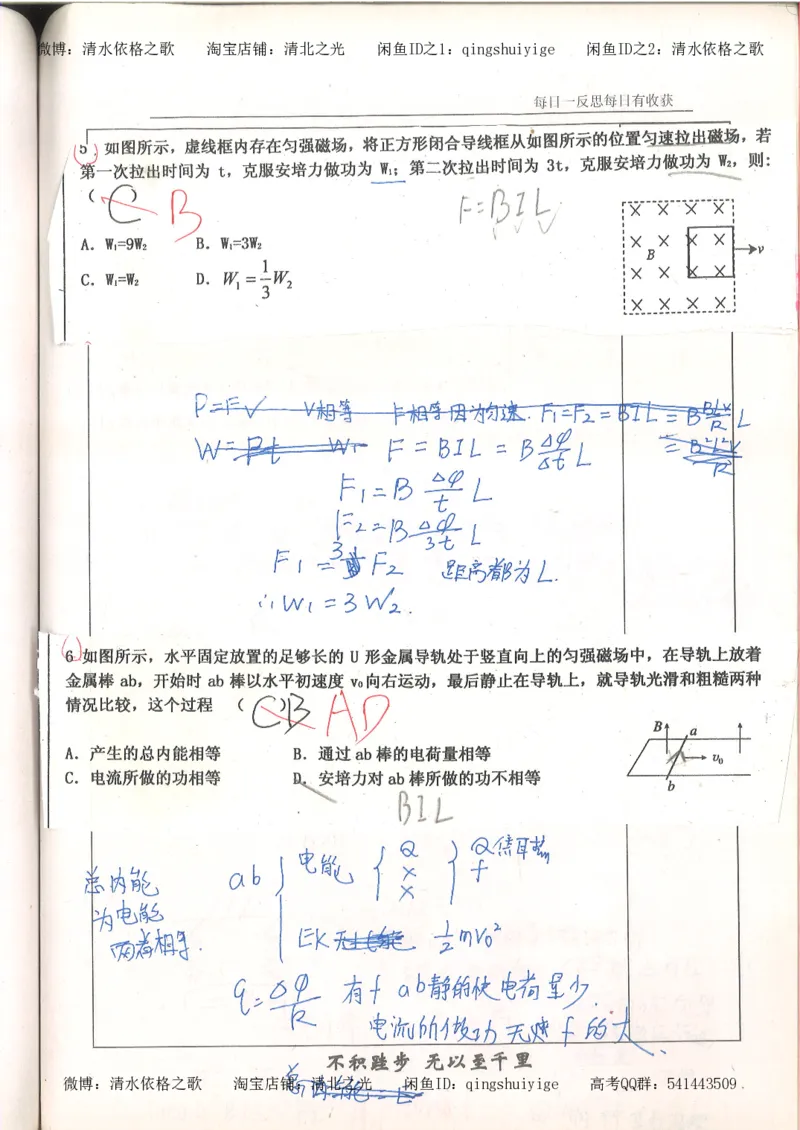 微博：清水依格之歌 淘宝店铺：清北之光 闲鱼ID之1：qingshuiyige 闲鱼ID之2：清水依格之歌
每日一反思每日有收获
5．如图所示，虚线框内存在匀强磁场，将正方形闭合导线框从如图所示的位置匀速拉出磁场，若
第一次拉出时间为 t，克服安培力做功为 W₁；第二次拉出时间为 3t，克服安培力做功为 W₂，则：
（ C ） B F=BIL
A．W₁=9W₂ B．W₁=3W₂
C．W₁=W₂ D．W₁=1/3W₂
B v
P=Fv v相等 F相等因为匀速. F₁=F₂=BIL=B BLv/R L
W=Pt W₁= F=BIL=B Δφ/Δt L = B²L²v/R
F₁=B Δφ/t L
F₂=B Δφ/3t L
F₁=3F₂ 距离都为L.
∴W₁=3W₂.
6．如图所示，水平固定放置的足够长的 U 形金属导轨处于竖直向上的匀强磁场中，在导轨上放着
金属棒 ab，开始时 ab 棒以水平初速度 v₀向右运动，最后静止在导轨上，就导轨光滑和粗糙两种
情况比较，这个过程 （ CB ） AD
A．产生的总内能相等 B．通过 ab 棒的电荷量相等
C．电流所做的功相等 D．安培力对 ab 棒所做的功不相等
B a v₀ b
BIL
总内能 ab 电能 Q × × Q焦耳热 f
为电能
两者相等. EK无 ½mv₀²
q=Δφ/R 有f ab静的快电荷量少.
电流所做功 无f的大
不积跬步 无以至千里
微博：清水依格之歌 淘宝店铺：清北之光 闲鱼ID：qingshuiyige 高考QQ群：541443509